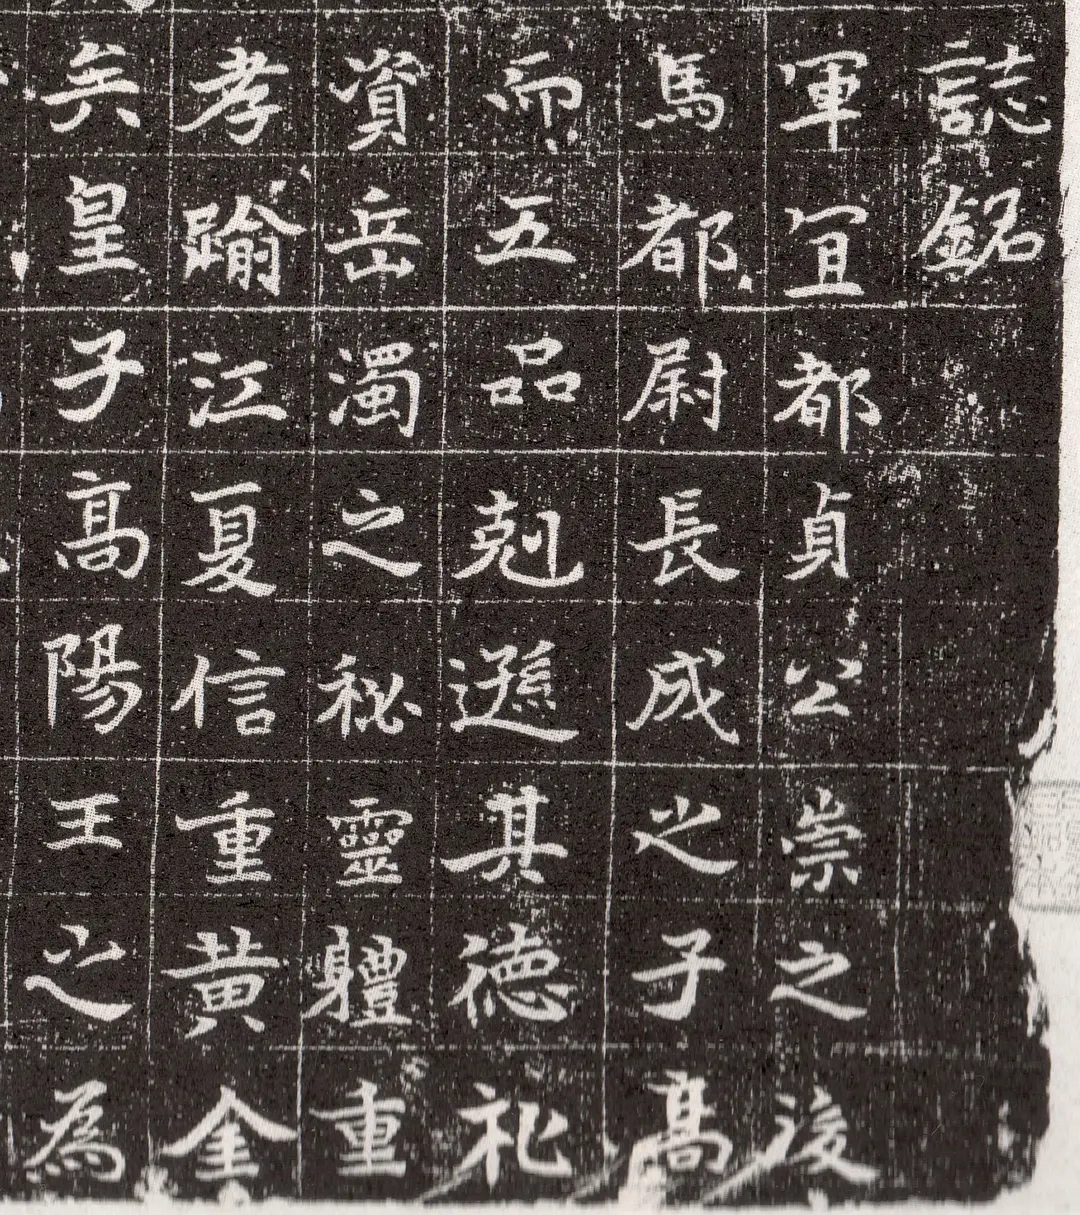 誌銘
軍冝都貞公崇之後
馬都尉長成之子高
而五品剋遜其德礼
資岳濁之秘靈軆重
孝踰江夏信重黄金
矣皇子高陽王之為